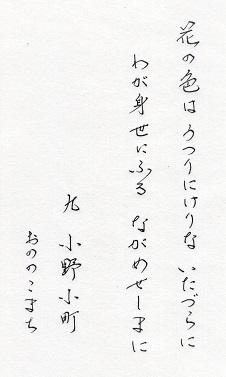 花の色は うつりにけりな いたづらに
わが身世にふる ながめせしまに
九 小野小町
おののこまち